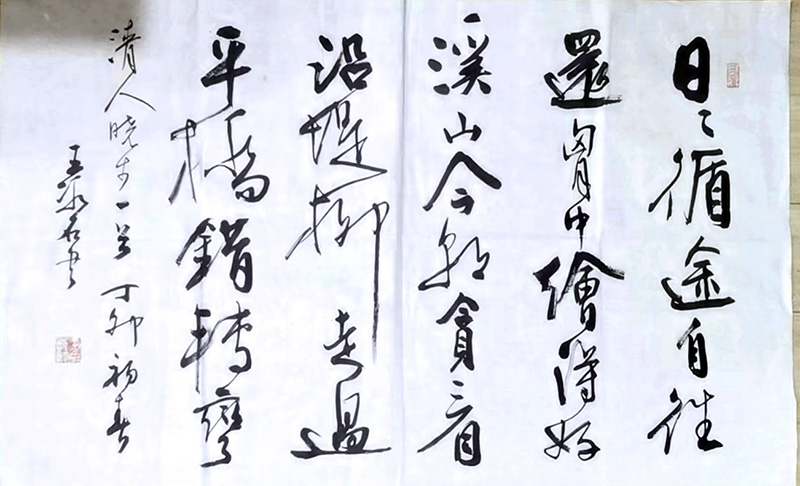 日々循途自往
還胷中繪得好
溪山今朝貪看
沿堤柳走過
平橋錯轉彎
清人晓步一首 丁卯初春
王石书